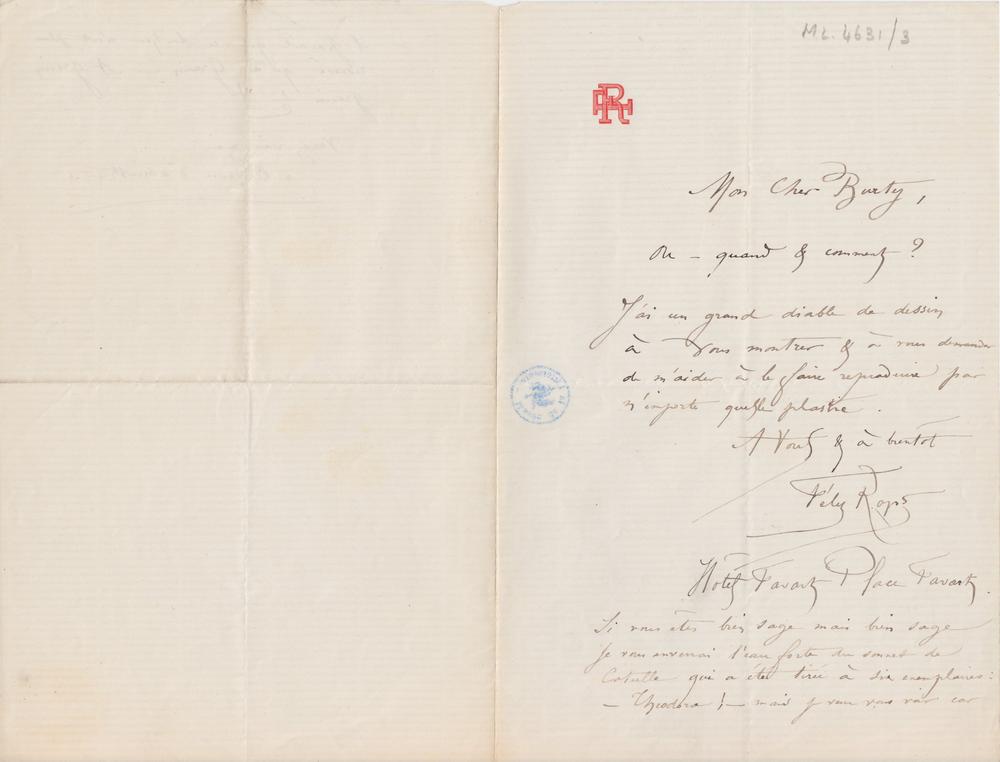 ML. 4631/3
FR
Mon Cher Burty,
Ou – quand & comment ?
J'ai un grand diable de dessin
à vous montrer & à vous demander
de m'aider à le faire reproduire par
n'importe quelle plastre.
A Vous & à bientôt
Félix Rops
Hotel Favart Place Favart.
Si vous êtes bien sage mais bien sage
Je vous enverrai l'eau forte du sonnet de
Catulle qui a été tirée à six exemplaires :
– Théodora ! – mais je veux vous voir car